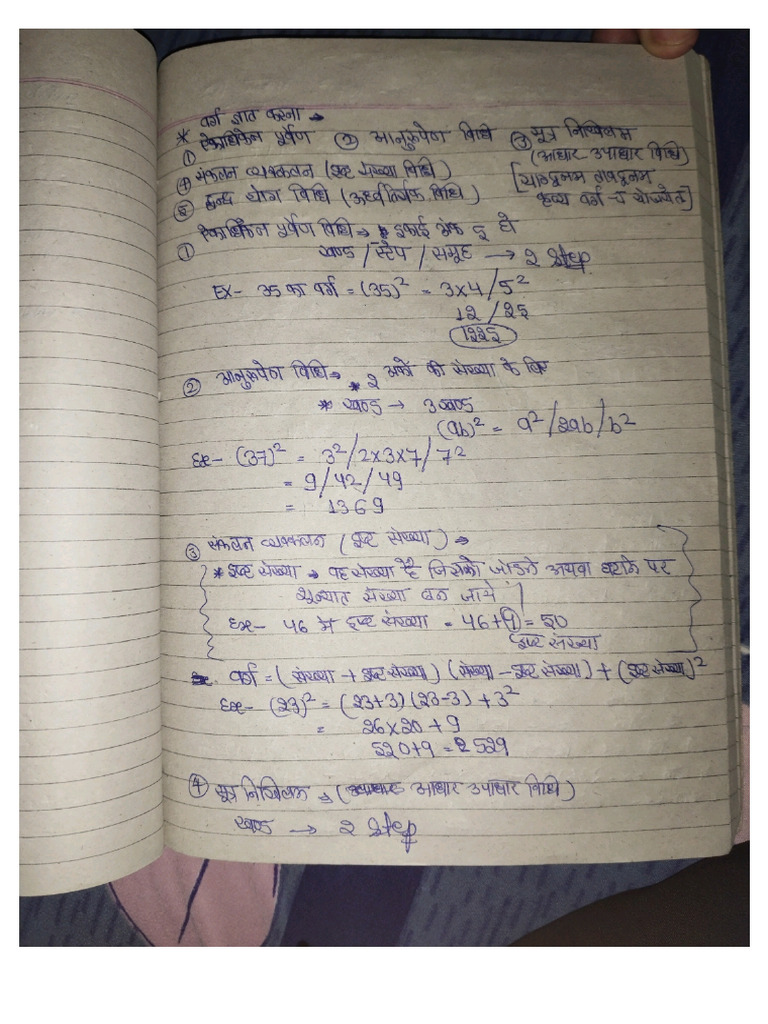 वर्ग ज्ञात करना →
* ① एकाधिकेन पूर्वेण ② आनुरूप्येण विधि ③ सूत्र निखिलम
(आधार उपाधार विधि)
④ संकलन व्यवकलन (इष्ट संख्या विधि)
[यावदूनम तावदूनम
कृत्य वर्ग च योजयेत]
⑤ द्वन्द योग विधि (उर्ध्वतिर्यक विधि)
① एकाधिकेन पूर्वेण विधि → * इकाई अंक 5 हो
खण्ड / स्टेप / समूह → 2 Step
EX- 35 का वर्ग = (35)² = 3x4/5²
12 / 25
1225
② आनुरूप्येण विधि → * 2 अंकों की संख्या के लिए
* खण्ड → 3 खण्ड
(ab)² = a²/2ab/b²
Ex- (37)² = 3²/2x3x7/7²
= 9/42/49
= 1369
③ संकलन व्यवकलन (इष्ट संख्या) →
* इष्ट संख्या → वह संख्या है जिसको जोड़ने अथवा घटाने पर
शून्यांत संख्या बन जाये
Ex- 46 मे इष्ट संख्या = 46+4 = 50
इष्ट संख्या
वर्ग = (संख्या + इष्ट संख्या) (संख्या - इष्ट संख्या) + (इष्ट संख्या)²
Ex- (23)² = (23+3) (23-3) + 3²
= 26x20+9
520+9 = 2529
④ सूत्र निखिलम → (आधार उपाधार विधि)
खण्ड → 2 Step